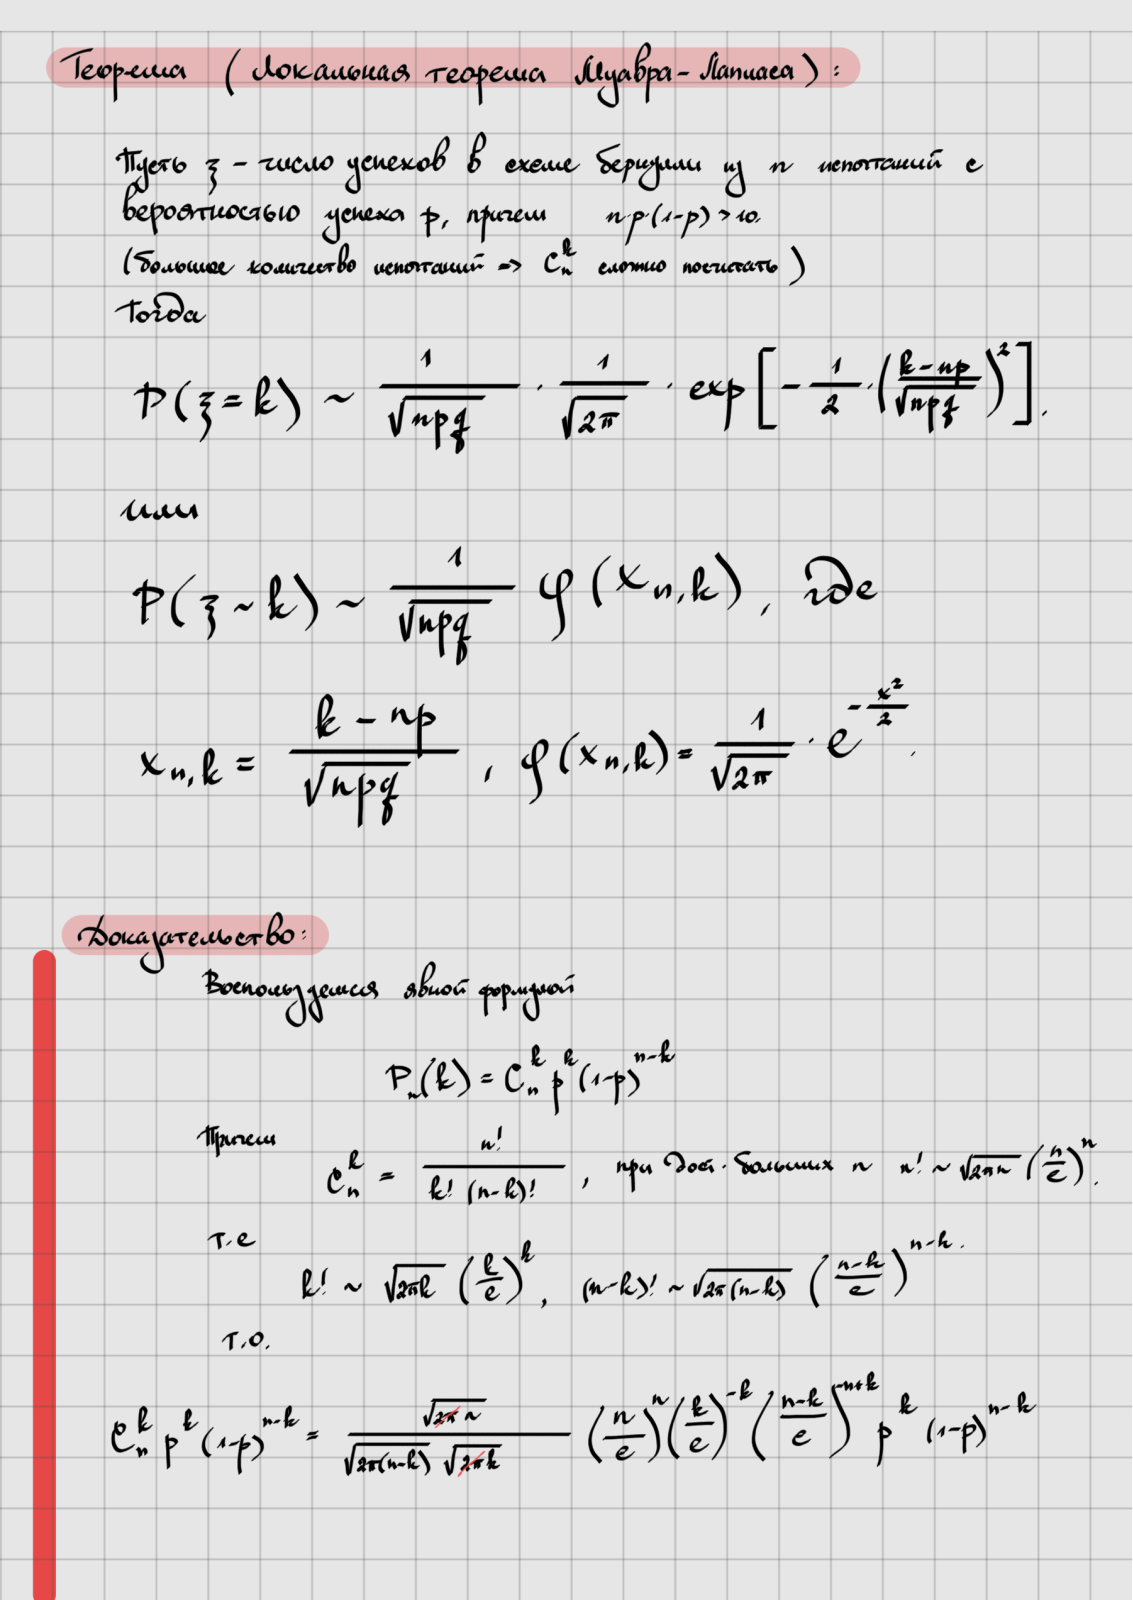 Теорема (Локальная теорема Муавра-Лапласа):
Пусть ξ - число успехов в схеме бернулли из n испытаний с
вероятностью успеха p, причем np(1-p) > 10.
(большое количество испытаний => C_n^k сложно посчитать)
Тогда
P(ξ = k) ~ 1/√(npq) · 1/√(2π) · exp[-1/2 · ((k-np)/√(npq))^2].
или
P(ξ ~ k) ~ 1/√(npq) φ(x_{n,k}), где
x_{n,k} = (k - np)/√(npq), φ(x_{n,k}) = 1/√(2π) · e^{-x^2/2}.
Доказательство:
Воспользуемся явной формулой
P_n(k) = C_n^k p^k (1-p)^{n-k}
Причем
C_n^k = n!/(k! (n-k)!), при дост. больших n n! ~ √(2πn) (n/e)^n.
т.е
k! ~ √(2πk) (k/e)^k, (n-k)! ~ √(2π(n-k)) ((n-k)/e)^{n-k}.
т.о.
C_n^k p^k (1-p)^{n-k} = √(2πn)/(√(2π(n-k)) √(2πk)) (n/e)^n (k/e)^{-k} ((n-k)/e)^{-n+k} p^k (1-p)^{n-k}